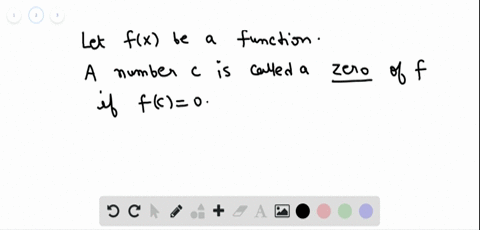 Let f(x) be a function.
A number c is called a zero of f
if f(c)=0.